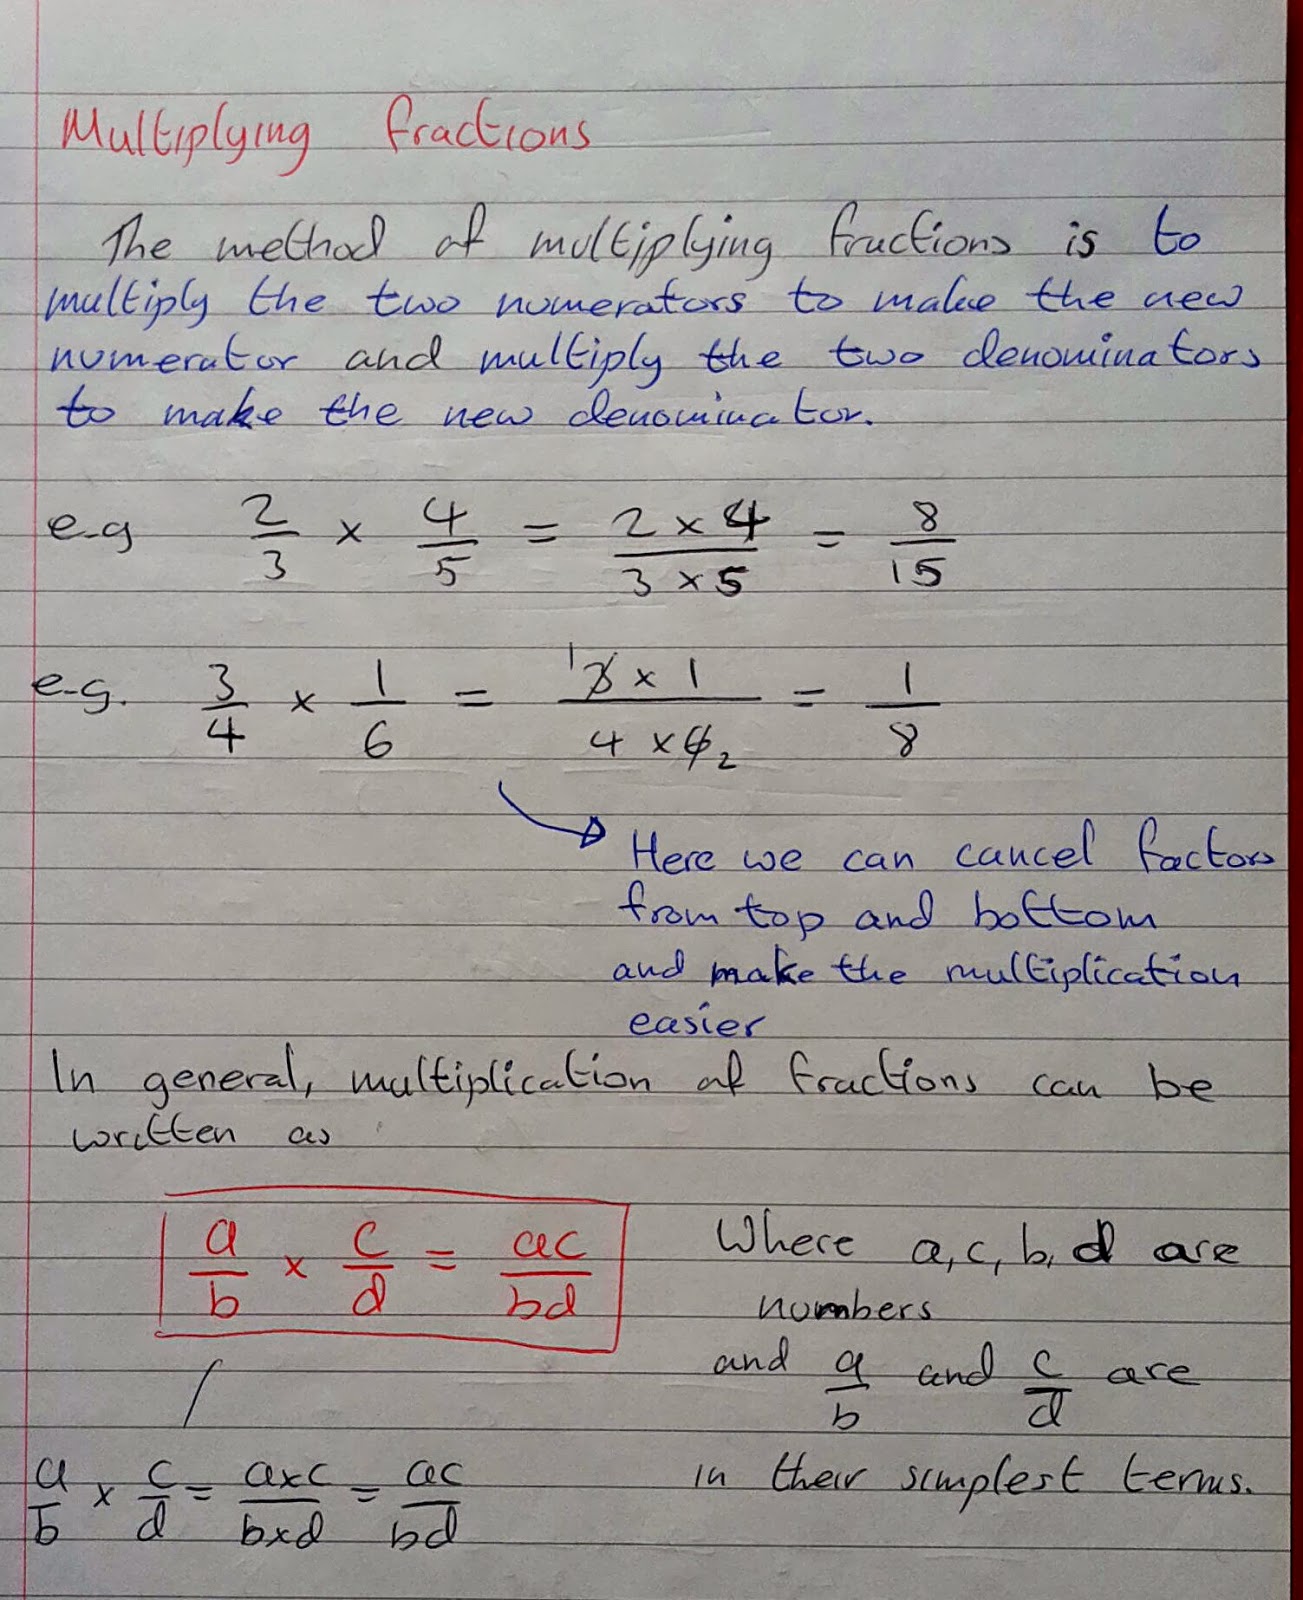 Multiplying fractions
The method of multiplying fractions is to
multiply the two numerators to make the new
numerator and multiply the two denominators
to make the new denominator.
e-g 2/3 × 4/5 = 2 × 4 / 3 × 5 = 8/15
e-g. 3/4 × 1/6 = ¹3 × 1 / 4 × 6₂ = 1/8
Here we can cancel factors
from top and bottom
and make the multiplication
easier
In general, multiplication of fractions can be
written as
a/b × c/d = ac/bd
Where a, c, b, d are
numbers
and a/b and c/d are
in their simplest terms.
a/b × c/d = a×c/b×d = ac/bd